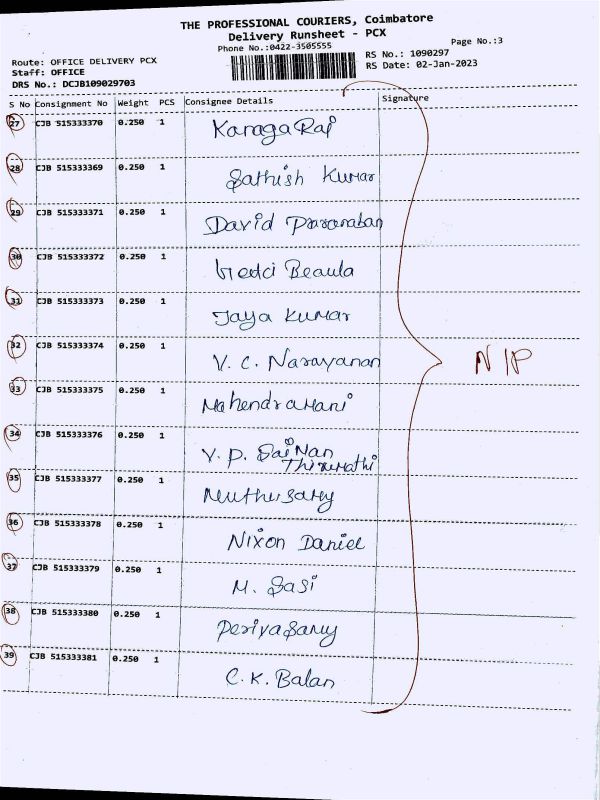 THE PROFESSIONAL COURIERS, Coimbatore
Delivery Runsheet - PCX
Phone No.:0422-3505555
Page No.:3
Route: OFFICE DELIVERY PCX
RS No.: 1090297
Staff: OFFICE
RS Date: 02-Jan-2023
DRS No.: DCJB109029703
S No Consignment No Weight PCS Consignee Details Signature
27 CJB 515333370 0.250 1 KanagaRaj
28 CJB 515333369 0.250 1 Sathish Kumar
29 CJB 515333371 0.250 1 David
30 CJB 515333372 0.250 1 Beaula
31 CJB 515333373 0.250 1 Jaya Kumar
32 CJB 515333374 0.250 1 V. C. Narayanan
N/P
33 CJB 515333375 0.250 1 MahendraMani
34 CJB 515333376 0.250 1 V. P.
35 CJB 515333377 0.250 1 Muthusamy
36 CJB 515333378 0.250 1 Nixon Daniel
37 CJB 515333379 0.250 1 M. Sasi
38 CJB 515333380 0.250 1 Periyasamy
39 CJB 515333381 0.250 1 C. K. Balan